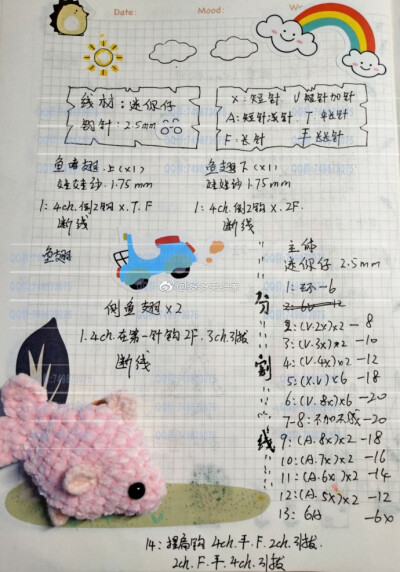 Date:
Mood:
线材:迷你仔
钩针:2.5mm
X:短针 V短针加针
A:短针浅针 T:中长针
F:长针
长长针
鱼尾翅上(x1)
娃娃纱1.75mm
1:4ch.倒2钩X.T.F
断线
鱼翅下(x1)
娃娃纱1.75mm
1:4ch.倒2钩X.2F.
断线
鱼翅
侧鱼翅x2
1.4ch.在第一针钩2F.3ch.引拔
断线
分割线
主体
迷你仔 2.5mm
1:环-6
2:6V-12
(V.2x)x2-8
3:(V.3x)x2-10
4:(V.4x)x2-12
5:(X.V)x6-18
6:(V.8x)x6-20
7-8:不加不减-20
9:(A.8x)x2-18
10:(A.7x)x2-16
11:(A.6x)x2-14
12:(A.5x)x2-12
13:6A-6x
14:4ch.F.2ch.引拔.
2ch.F.4ch.引拔